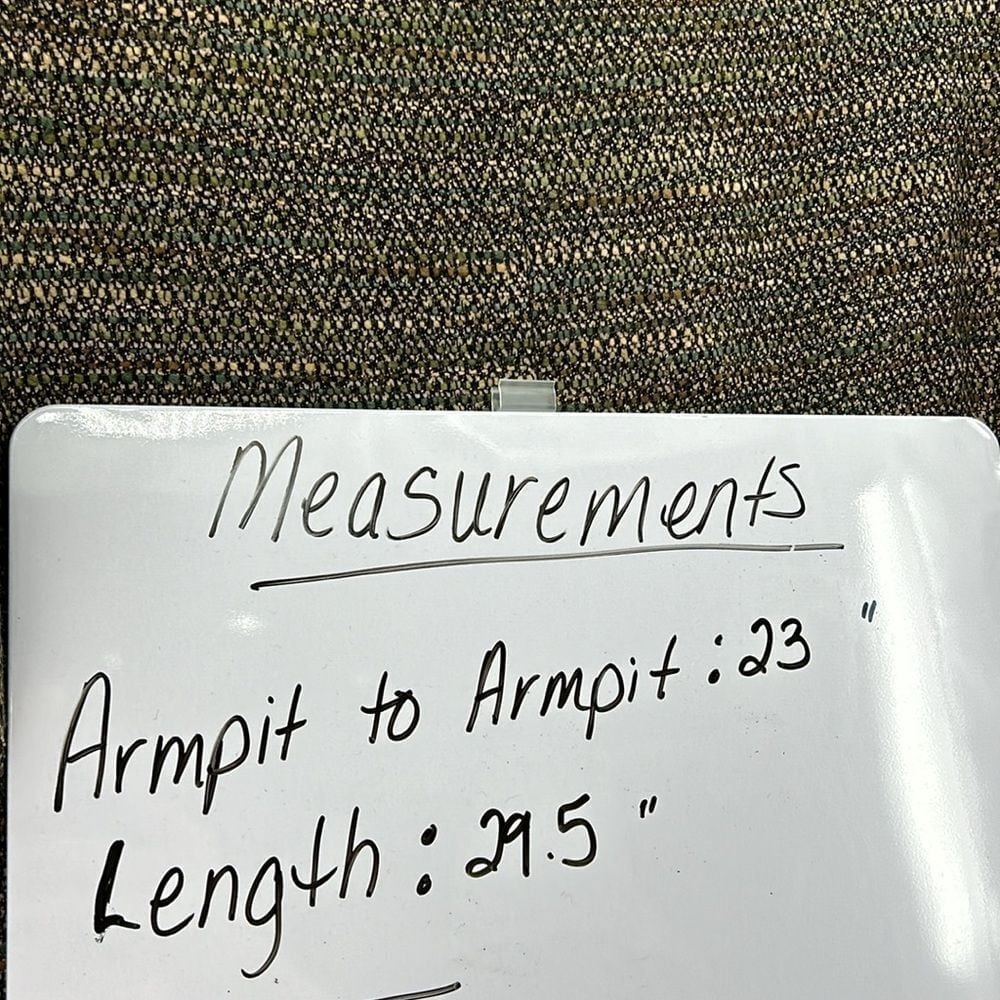 Measurements
Armpit to Armpit : 23 "
Length : 29.5 "